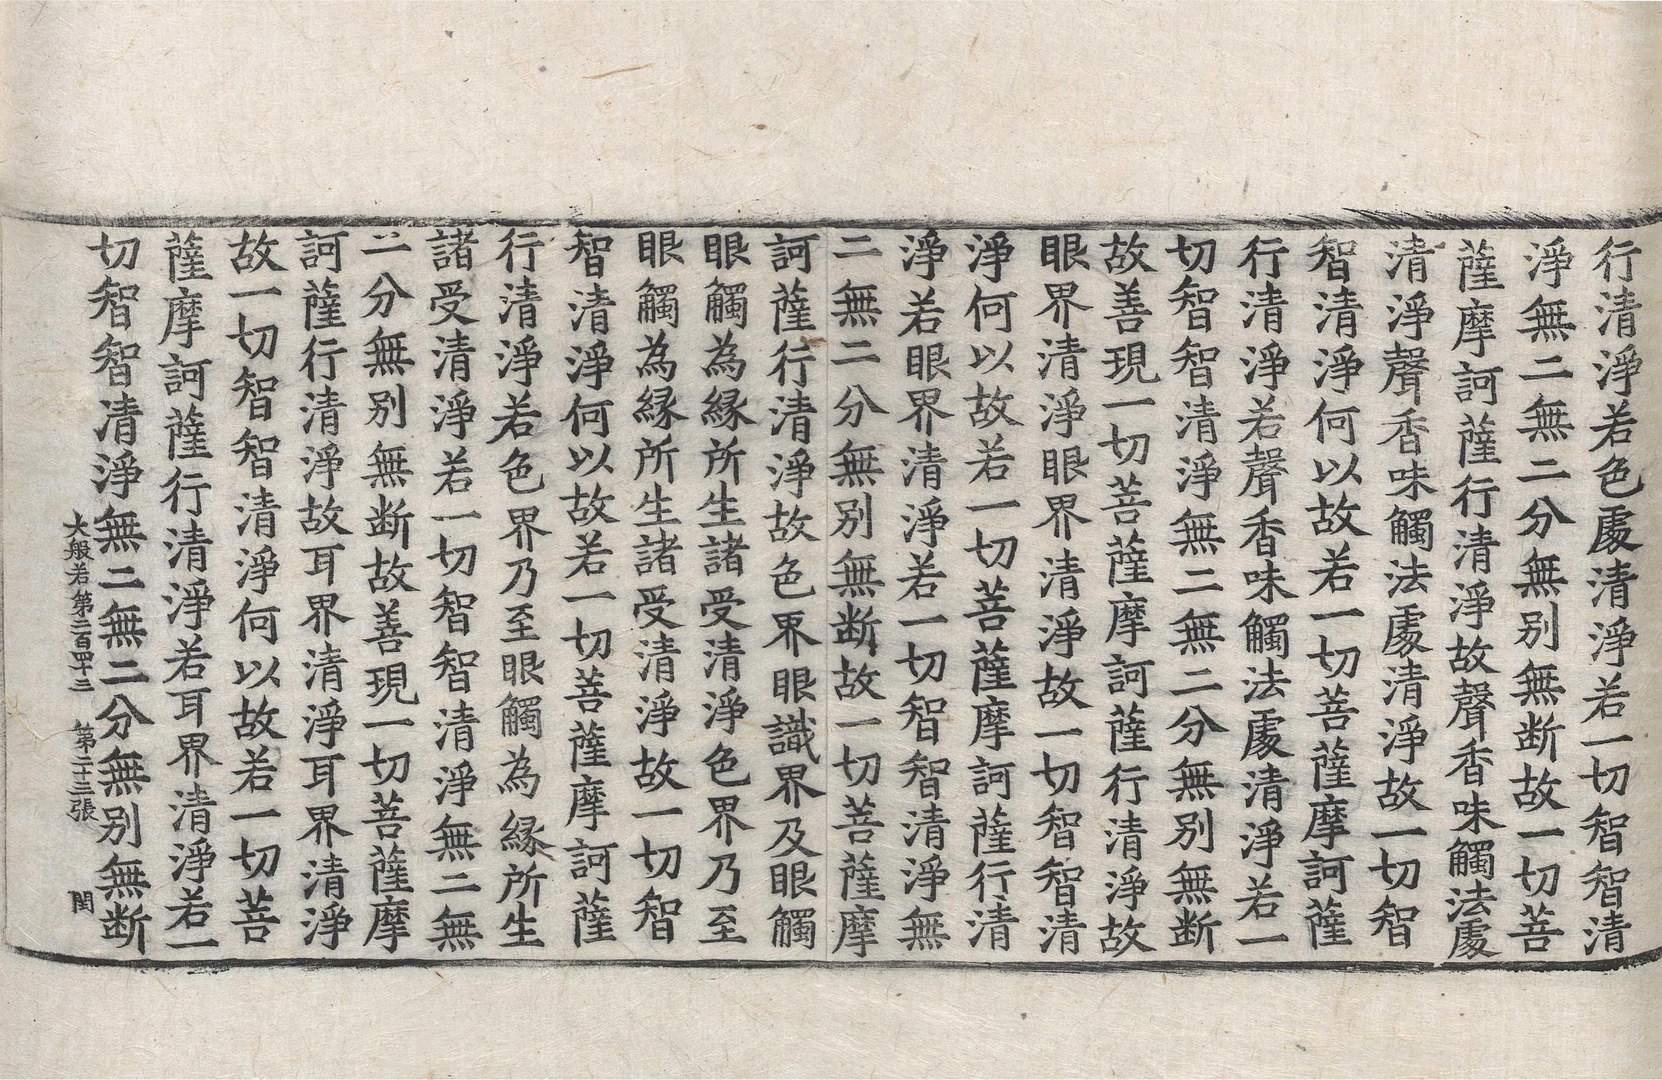 行清淨若色處清淨若一切智智清
淨無二無二分無別無断故一切菩
薩摩訶薩行清淨故聲香味觸法處
清淨聲香味觸法處清淨故一切智
智清淨何以故若一切菩薩摩訶薩
行清淨若聲香味觸法處清淨若一
切智智清淨無二無二分無別無断
故善現一切菩薩摩訶薩行清淨故
眼界清淨眼界清淨故一切智智清
淨何以故若一切菩薩摩訶薩行清
淨若眼界清淨若一切智智清淨無
二無二分無別無断故一切菩薩摩
訶薩行清淨故色界眼識界及眼觸
眼觸為縁所生諸受清淨色界乃至
眼觸為縁所生諸受清淨故一切智
智清淨何以故若一切菩薩摩訶薩
行清淨若色界乃至眼觸為縁所生
諸受清淨若一切智智清淨無二無
二分無別無断故善現一切菩薩摩
訶薩行清淨故耳界清淨耳界清淨
故一切智智清淨何以故若一切菩
薩摩訶薩行清淨若耳界清淨若一
切智智清淨無二無二分無別無断
大般若第二百四十三 第二十三張 閏